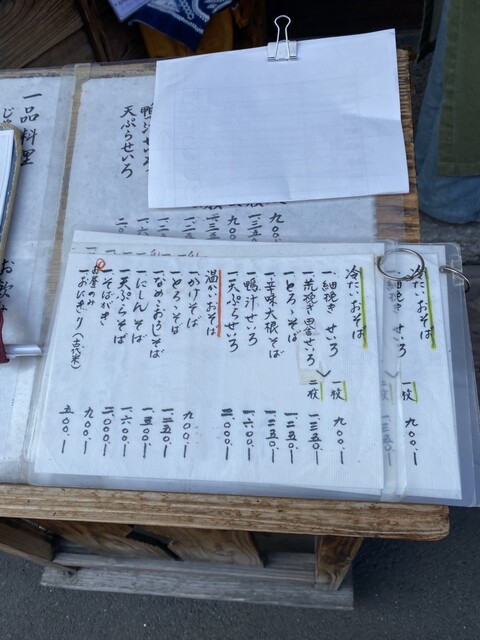 冷たいおそば
一細挽き せいろ 一枚 九〇〇.―
二枚 一.三五〇.―
冷たいおそば
一細挽き せいろ 一枚 九〇〇.―
一荒挽き田舎せいろ 二枚 一.三五〇.―
一とろゝそば 一.二五〇.―
一辛味大根そば 一.二五〇.―
一鴨汁せいろ 一.六〇〇.―
一天ぷらせいろ 二.〇〇〇.―
温かいおそば
一かけそば 九〇〇.―
一とろゝそば 一.二五〇.―
一なめこおろしそば
一にしんそば 一.六〇〇.―
一天ぷらそば 二.〇〇〇.―
一そばがき 九〇〇.―
お昼のみ
一おにぎり(古代米) 五〇〇.―
鴨汁せいろ
天ぷらせいろ
一品料理